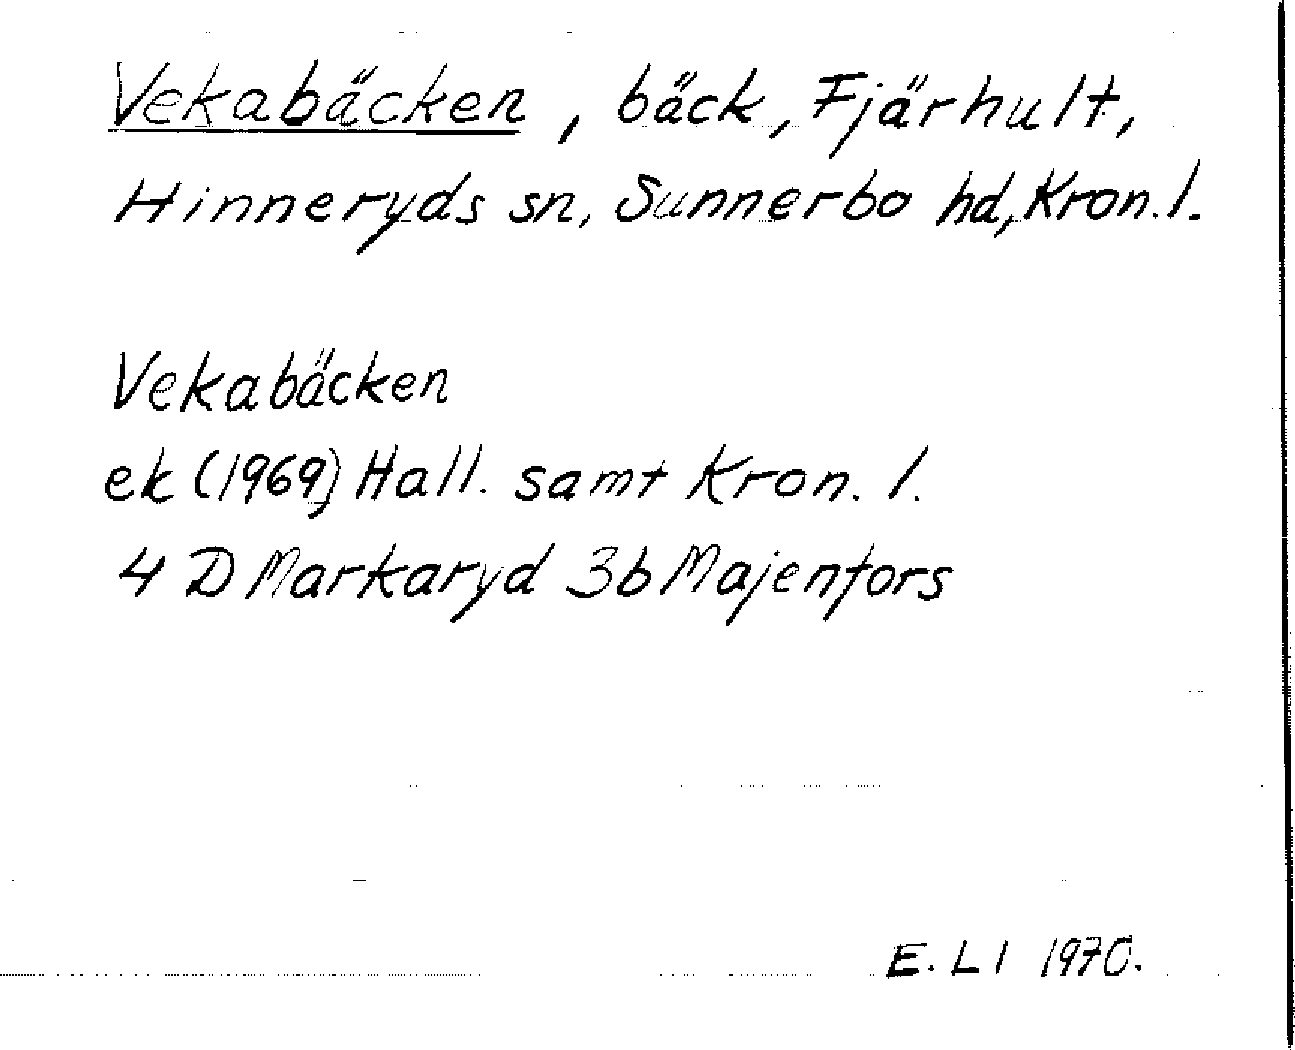 Vekabäcken, bäck, Fjärhult,
Hinneryds sn, Sunnerbo hd, Kron. l.
Vekabäcken
ek (1969) Hall. samt Kron. l.
4 D Markaryd 3b Majenfors
E. L l 1970.